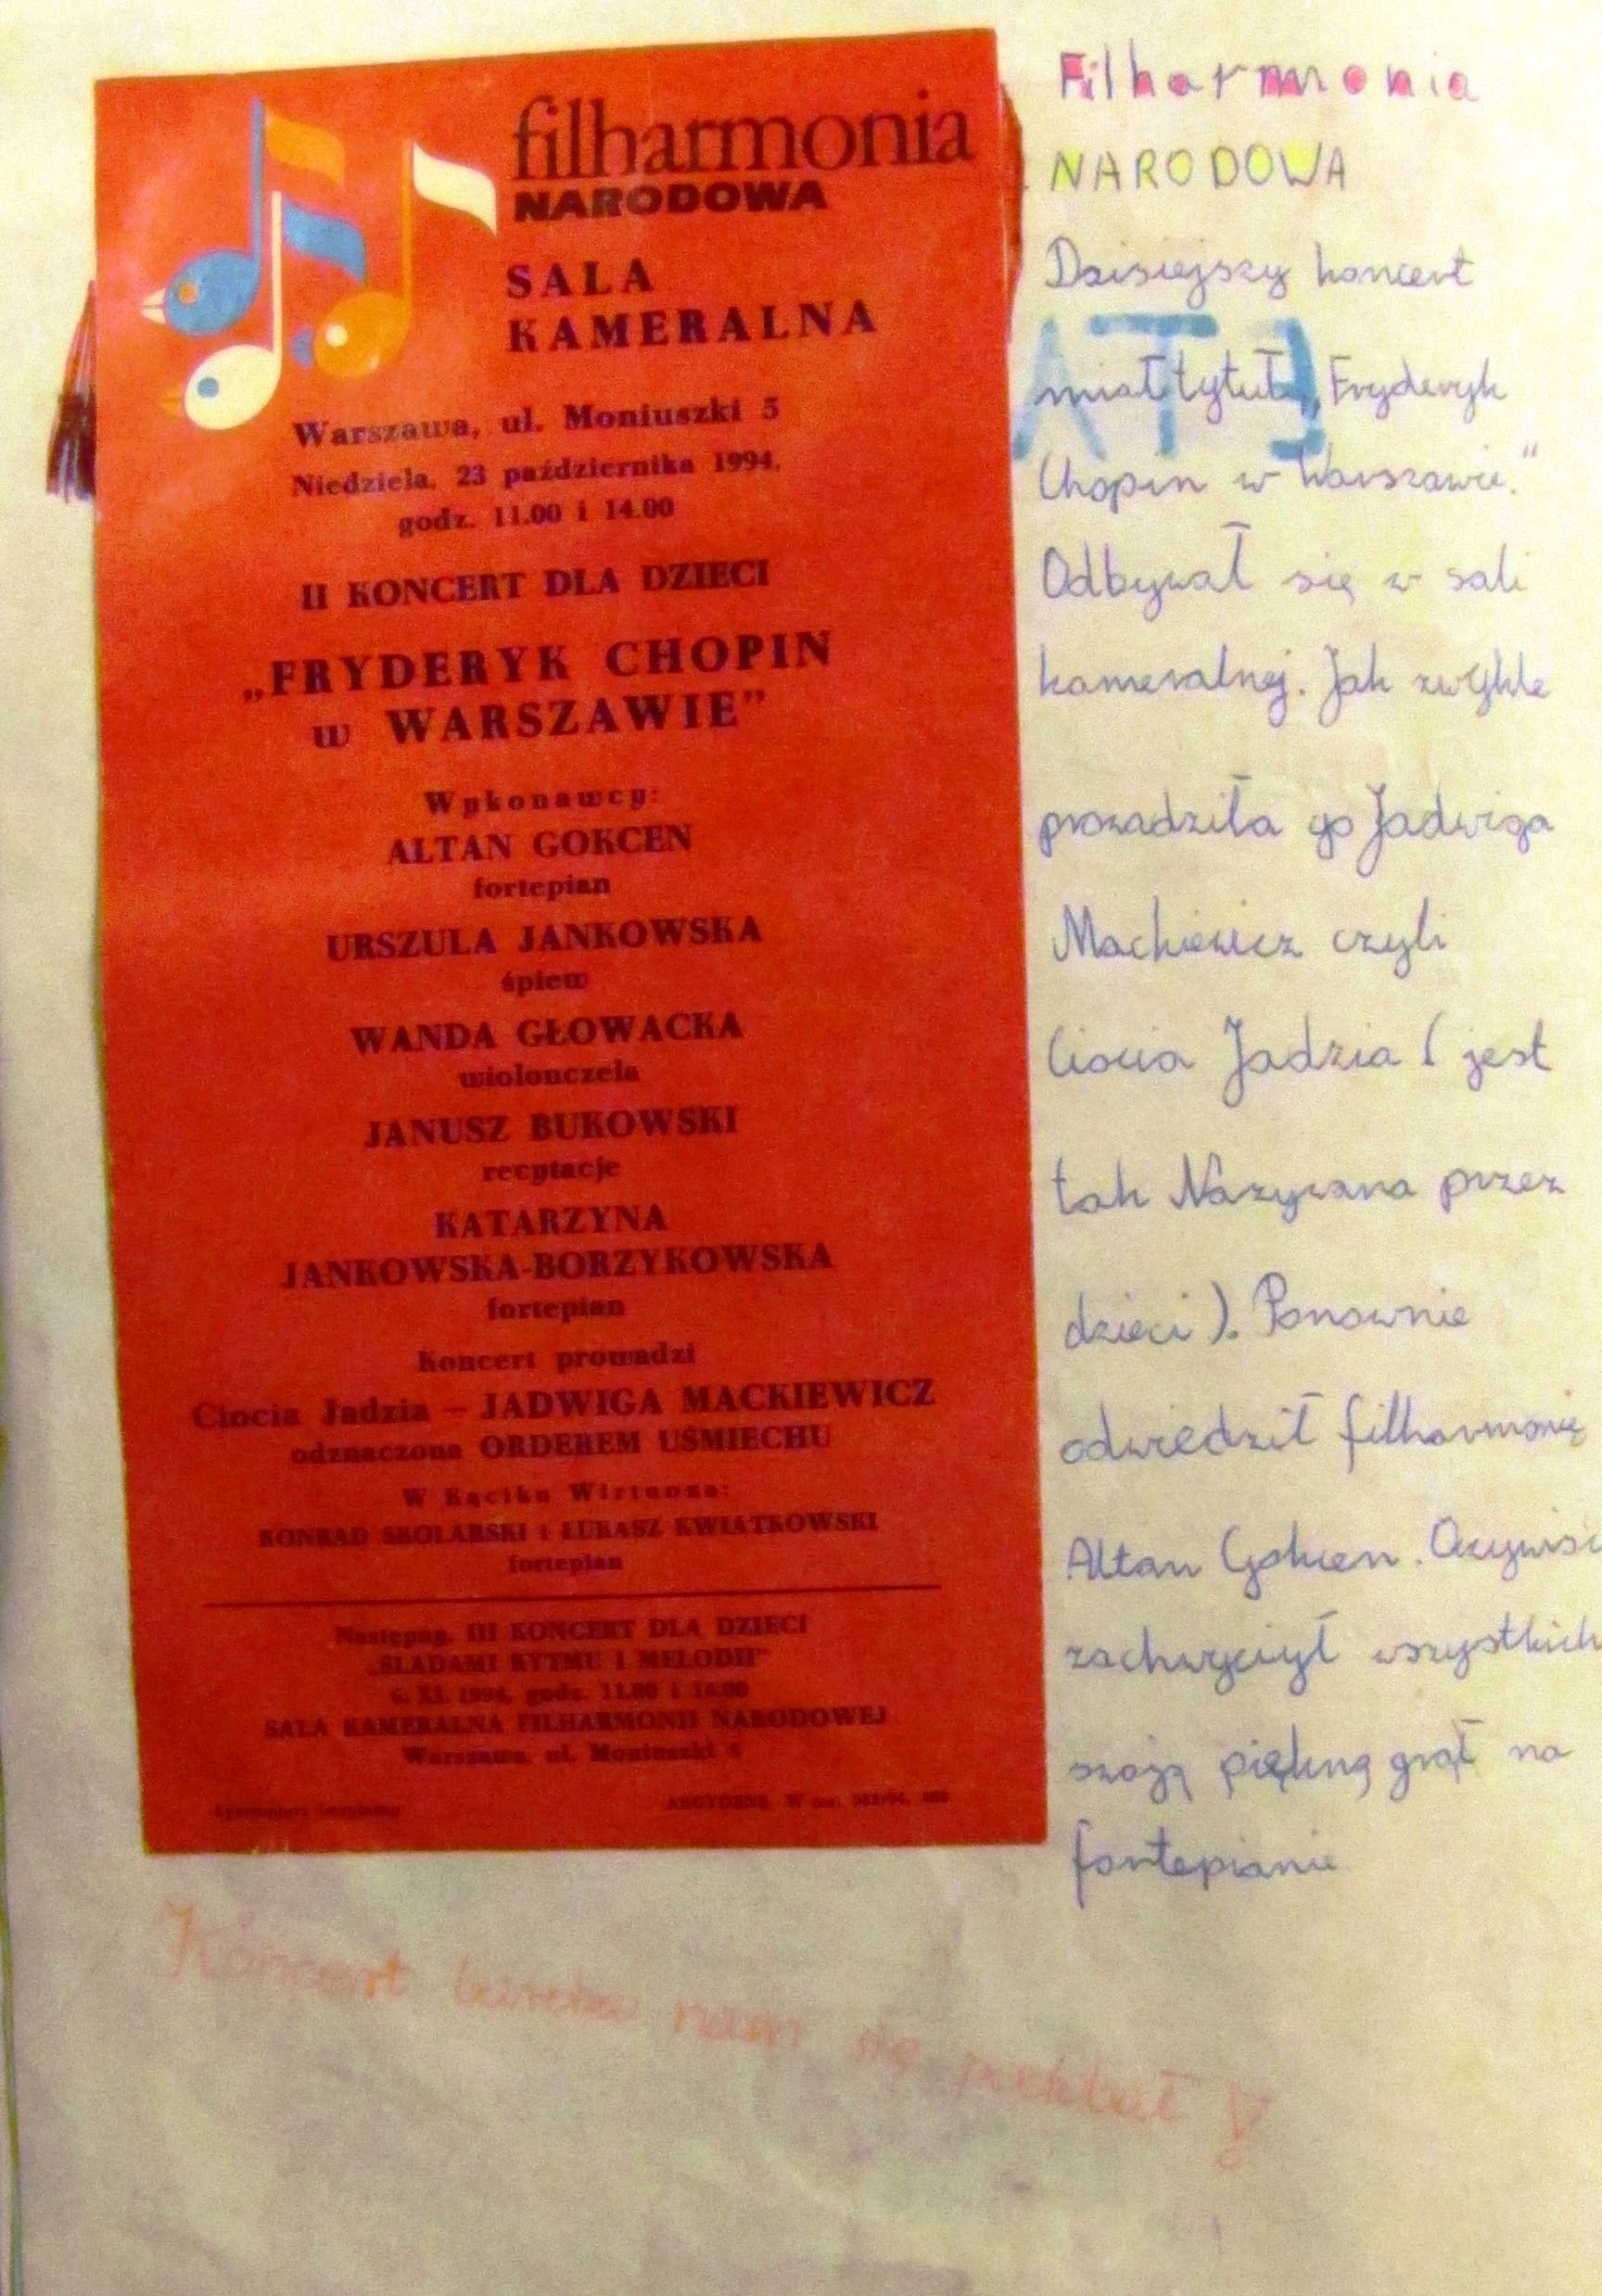 filharmonia
NARODOWA
SALA
KAMERALNA
Warszawa, ul. Moniuszki 5
Niedziela, 23 października 1994,
godz. 11.00 i 14.00
II KONCERT DLA DZIECI
„FRYDERYK CHOPIN
w WARSZAWIE”
Wykonawcy:
ALTAN GOKCEN
fortepian
URSZULA JANKOWSKA
śpiew
WANDA GŁOWACKA
wiolonczela
JANUSZ BUKOWSKI
recytacje
KATARZYNA
JANKOWSKA-BORZYKOWSKA
fortepian
Koncert prowadzi
Ciocia Jadzia – JADWIGA MACKIEWICZ
odznaczona ORDEREM UŚMIECHU
W Kąciku Wirtuoza:
KONRAD SKOLARSKI i ŁUKASZ KWIATKOWSKI
fortepian
Następny, III KONCERT DLA DZIECI
„ŚLADAMI RYTMU I MELODII”
6. XI. 1994, godz. 11.00 i 14.00
SALA KAMERALNA FILHARMONII NARODOWEJ
Warszawa, ul. Moniuszki 5
Egzemplarz bezpłatny
Filharmonia
NARODOWA
Dzisiejszy koncert
miał tytuł „Fryderyk
Chopin w Warszawie.”
Odbywał się w sali
kameralnej. Jak zwykle
prowadziła go Jadwiga
Mackiewicz czyli
Ciocia Jadzia ( jest
tak Nazywana przez
dzieci ). Ponownie
odwiedził filharmonię
Altan Gokcen. Oczywiści
zachwycił wszystkich
swoją piękną grął na
fortepianie
Koncert bardzo nam się podobał !